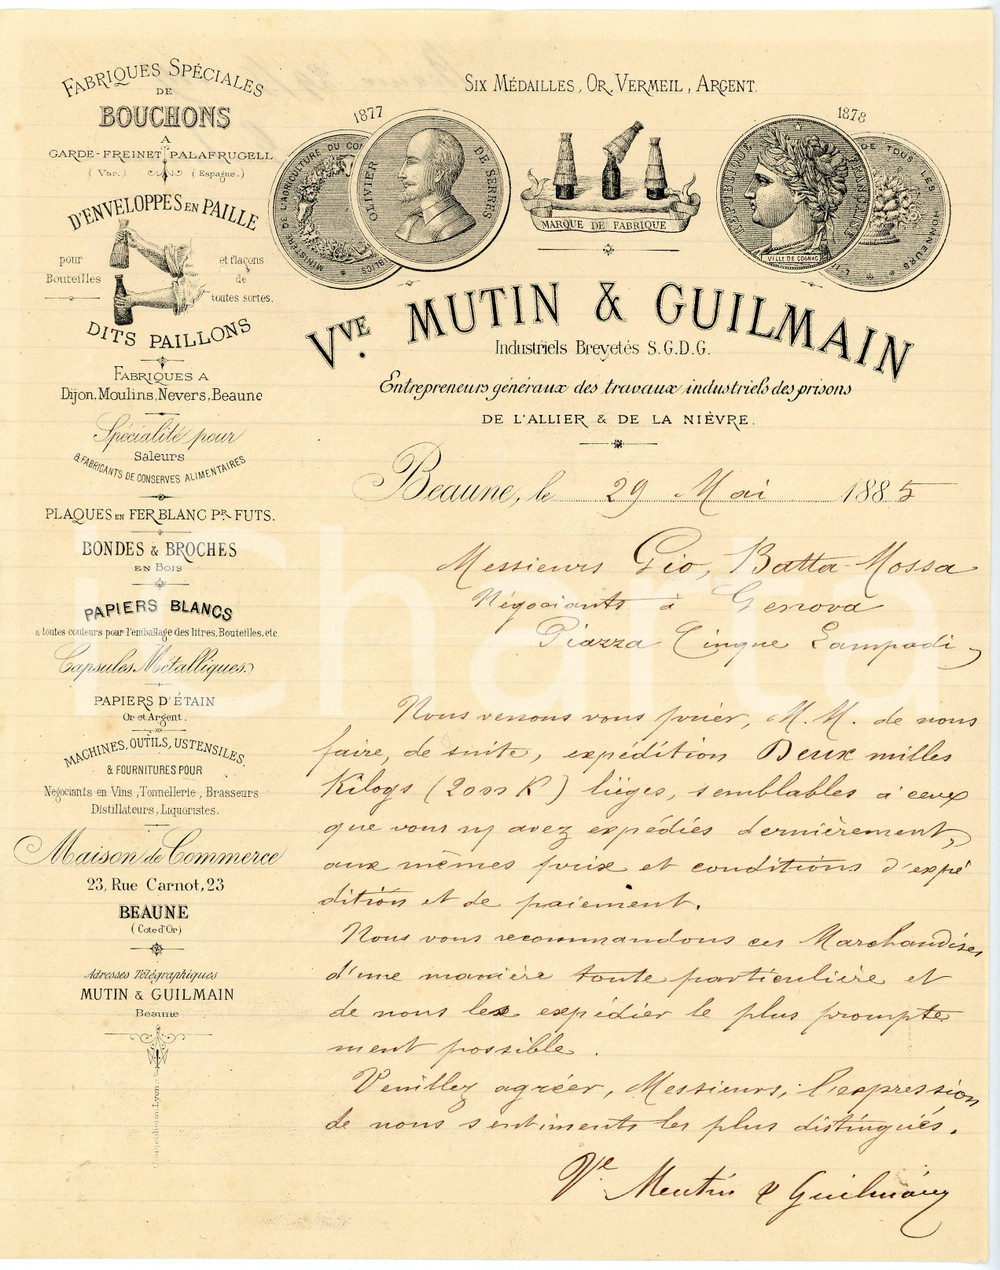 FABRIQUES SPÉCIALES
DE
BOUCHONS
A
GARDE-FREINET PALAFRUGELL
(Var.) (Espagne.)
D'ENVELOPPES EN PAILLE
pour
Bouteilles
et flacons
de
toutes sortes.
DITS PAILLONS
FABRIQUES A
Dijon, Moulins, Nevers, Beaune
Spécialité pour
Saleurs
& FABRICANTS DE CONSERVES ALIMENTAIRES
PLAQUES EN FER BLANC PR FUTS.
BONDES & BROCHES
EN BOIS
PAPIERS BLANCS
& toutes couleurs pour l'emballage des litres, Bouteilles, etc.
Capsules Métalliques
PAPIERS D'ÉTAIN
Or et Argent.
MACHINES, OUTILS, USTENSILES.
& FOURNITURES POUR
Négociants en Vins, Tonnellerie, Brasseurs
Distillateurs, Liquoristes.
Maison de Commerce
23, Rue Carnot, 23
BEAUNE
(Côte d'Or)
Adresses Télégraphiques
MUTIN & GUILMAIN
Beaune
SIX MÉDAILLES, OR, VERMEIL, ARGENT.
1877
MINISTÈRE DE L'AGRICULTURE DU
OLIVIER DE SERRES
MARQUE DE FABRIQUE
1878
RÉPUBLIQUE FRANÇAISE
VILLE DE COGNAC
DE TOUS LES HONNEURS
VVE MUTIN & GUILMAIN
Industriels Brevetés S.G.D.G.
Entrepreneurs généraux des travaux industriels des prisons
DE L'ALLIER & DE LA NIÈVRE.
Beaune, le 29 Mai 1885
Messieurs Gio, Batta Mossa
Négociants à Genova
Piazza Cinque Lampadi,
Nous venons vous prier, M.M. de nous
faire, de suite, expédition Deux milles
Kilogs (2000 K) lièges, semblables à ceux
que vous ns avez expédiés dernièrement,
aux mêmes prix et conditions d'expé
dition et de paiement.
Nous vous recommandons ces Marchandises
d'une manière toute particulière et
de nous les expédier le plus prompte
ment possible.
Veuillez agréer, Messieurs, l'expression
de nous sentiments les plus distingués.
Ve Mutin & Guilmain
Charta